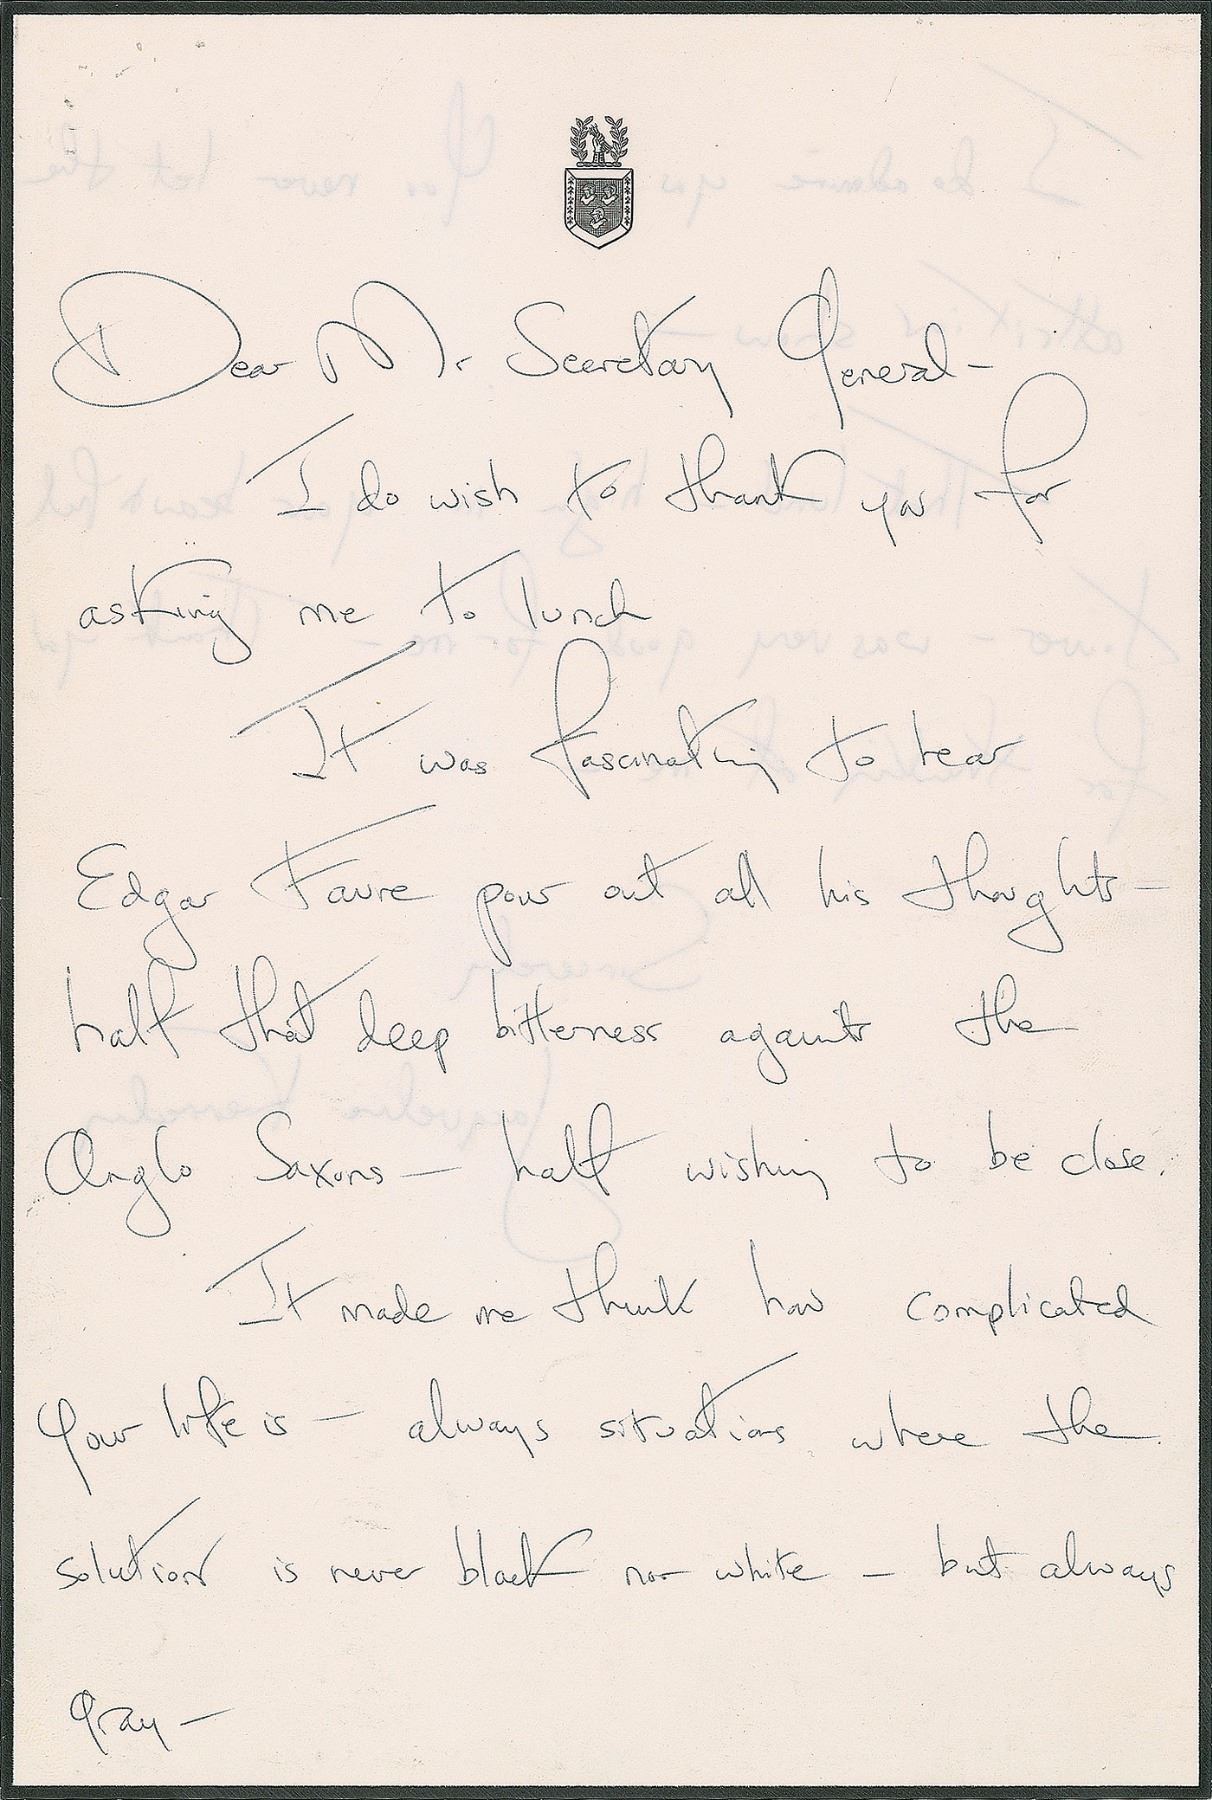 Dear Mr Secretary General -
I do wish to thank you for
asking me to lunch
It was fascinating to hear
Edgar Faure pour out all his thoughts -
half that deep bitterness against the
Anglo Saxons - half wishing to be close.
It made me think how complicated
your life is - always situations where the
solution is never black nor white - but always
gray -